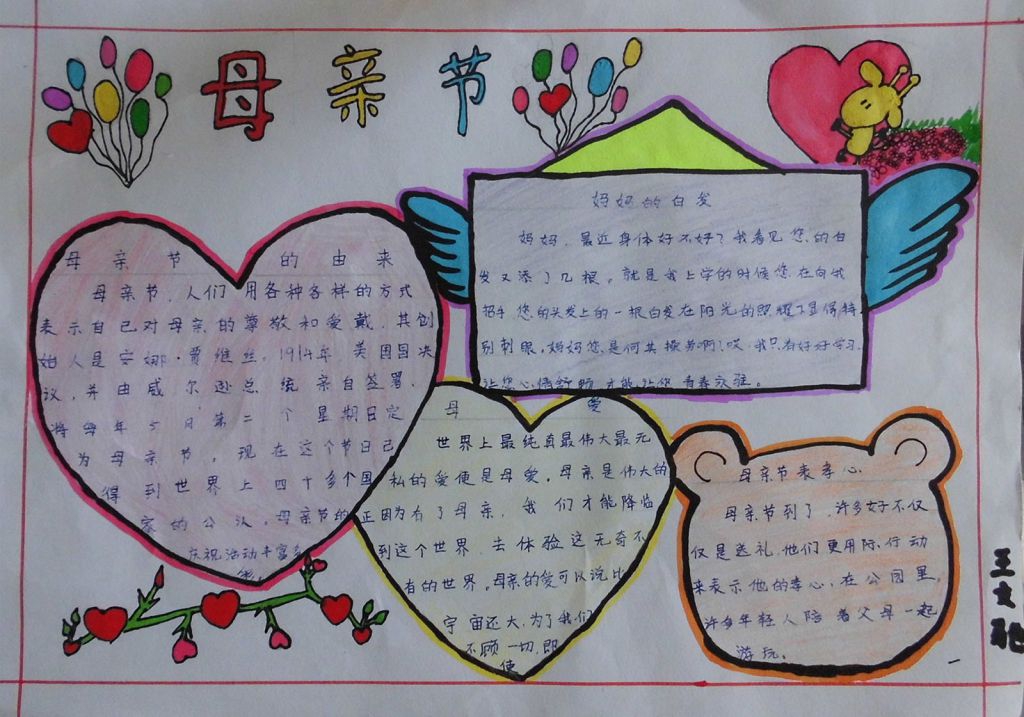 母亲节
母亲节的由来
母亲节,人们用各种各样的方式
表示自己对母亲的尊敬和爱戴,其创
始人是安娜·贾维丝,1914年,美国国决
议,并由威尔逊总统亲自签署,
将每年5月第二个星期日定
为母亲节,现在这个节日已
得到世界上四十多个国
家的公认,母亲节的
庆祝活动丰富多
妈妈的白发
妈妈,最近身体好不好?我看见您的白
发又添了几根。就是我上学的时候您在向我
招手您的头发上的一根白发在阳光的照耀下显得特
别刺眼,妈妈您是何其操劳啊!哎,我只有好好学习,
让您心情舒畅,才能让您青春永驻。
母爱
世界上最纯真最伟大最无
私的爱便是母爱。母亲是伟大的
正因为有了母亲,我们才能降临
到这个世界,去体验这无奇不
有的世界。母亲的爱可以说比
宇宙还大,为了我们
不顾一切,即
使
母亲节表孝心
母亲节到了,许多好不仅
仅是送礼,他们更用际行动
来表示他的孝心,在公园里,
许多年轻人陪着父母一起
游玩。
王文驰